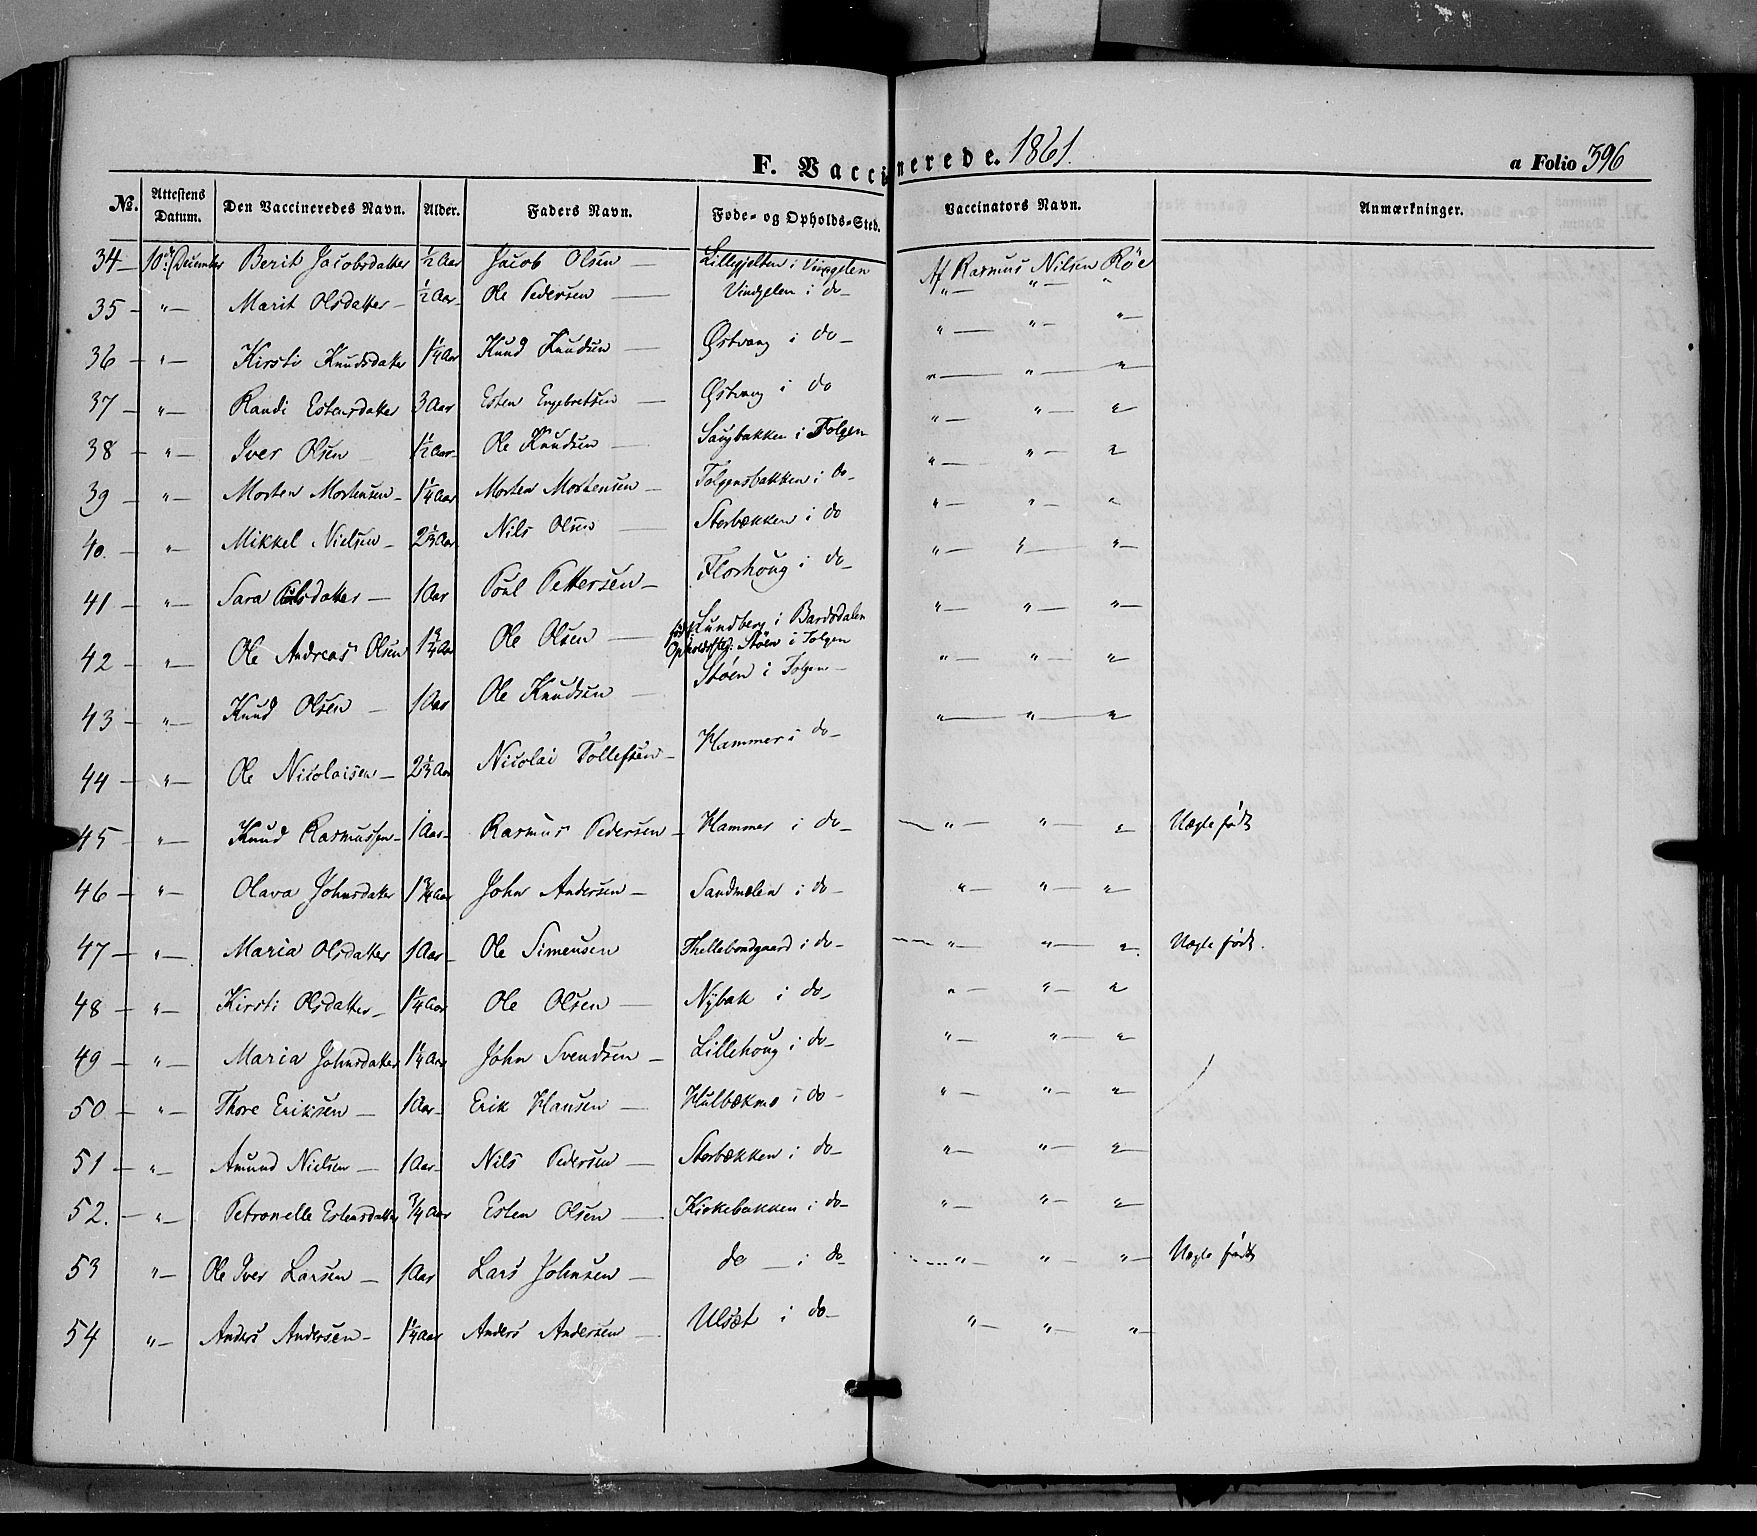 F. Vaccinerede. 1861.
a Folio 396
No. Attestens Datum. Den Vaccineredes Navn. Alder. Faders Navn. Føde- og Opholds-Sted. Vaccinators Navn. Anmærkninger.
34 – 10de December Berit Jacobsdatter ½ Aar Jacob Olsen — i Vingelen Af Rasmus Nilsen Röe
35 – " — Marit Olsdatter – ½ Aar – Ole Pedersen — Vindgelen i do – " — " — "
36 – " — Kirsti Knudsdatter 1¼ Aar Knud Knudsen — Østvang i do – " — " — "
37 – " — Randi Estensdatter 3 Aar Esten Engebretsen — Østvang i do " — " — "
38 – " — Iver Olsen — 1½ Aar – Ole Knudsen — i Tolgen " — " — "
39 – " — Morten Mortensen – 1¼ Aar Morten Mortensen — Tolgensbakken i do – " — " — "
40. – " — Mikkel Nielsen – 2½ Aar Nils Olsen — Storbækken i do " — " — "
41 – " — Sara Olsdatter — 1 Aar Poul Pettersen — Florhoug i do – " — " — "
42 – " — Ole Andreas Olsen 1¾ Aar Ole Olsen — Lundberg i Bardodalen
Støen i Tolgen " — " — "
43 – " — Knud Olsen – 1 Aar Ole Knudsen — Støen i Tolgen – " — " — "
44 – " — Ole Nicolaisen – Nicolai Tollefsen – Hammer i do – " — " — "
45 – " — Knud Rasmussen – 1 Aar – Rasmus Pedersen – Hammer i do – " — " — " Uægte født
46 – " — Olava Johnsdatter 1¾ Aar John Andersen – Sandmælen i do – " — " — "
47 – " — Maria Olsdatter 1 Aar – Ole Simensen Thellebondgaard i do – " — " — " Uægte født.
48 – " — Kirsti Olsdatter – 1¼ Aar Ole Olsen — Nybak i do – " — " — "
49 – " — Maria Johnsdatter 1¼ Aar John Svendsen – Lillehoug i do – " — " — "
50 – " — Thore Eriksen — 1 Aar – Erik Hansen — Hulbækmo i do – " — " — "
51 – " — Amund Nielsen — 1 Aar – Nils Pedersen — Storbækken i do – " — " — "
52. – " — Petronelle Estensdatter ¾ Aar Esten Olsen — Kirkebakken i do – " — " — "
53 " — Ole Iver Larsen — 1 Aar Lars Johnsen — do — i do – " — " — " Uægte født
54 " — Anders Andersen – 1¼ Aar Anders Andersen — Ulsæt i do – " — " — "